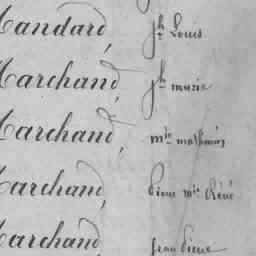 Mandard, jh Louis
Marchand, jh marie
Marchand, mie mathurin
Marchand, Pierre mie Réné
Marchand, jean Pierre